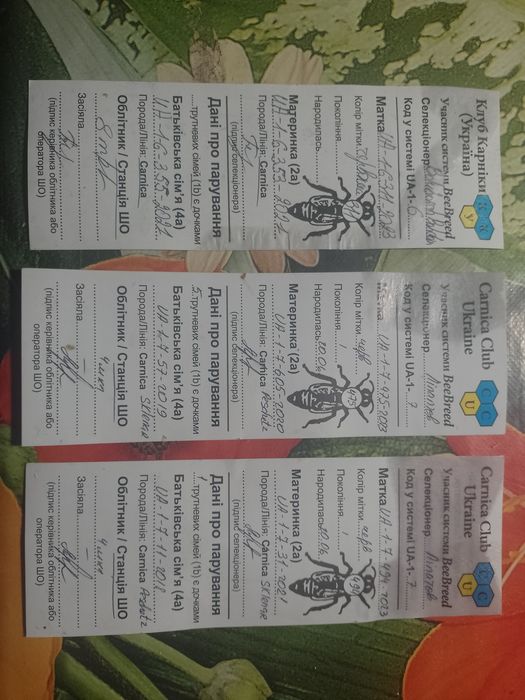 Клуб Карніки
(Україна)
К К
У
Учасник системи BeeBreed
Селекціонер
Код у системі UA-1- 6
Матка UA-1-6-371-2023
Колір мітки
371
Покоління
Народилась
Материнка (2a)
UA-1-6-353-2021
Порода/Лінія: Carnica
(підпис селекціонера)
Дані про парування
трутневих сімей (1b) є дочками
Батьківська сім'я (4a)
UA-1-6-355-2021
Порода/Лінія: Carnica
Облітник / Станція ШО
Засіяла
(підпис керівника облітника або
оператора ШО)
Carnica Club
Ukraine
C C
U
Учасник системи BeeBreed
Селекціонер Ліпатов
Код у системі UA-1- 7
Матка UA-1-7-475-2023
Колір мітки черв
475
Покоління 1
Народилась
Материнка (2a)
UA-1-7-605-2020
Порода/Лінія: Carnica Peshetz
(підпис селекціонера)
Дані про парування
5 трутневих сімей (1b) є дочками
Батьківська сім'я (4a)
UA-1-7-57-2019
Порода/Лінія: Carnica Sklenar
Облітник / Станція ШО
Засіяла –
(підпис керівника облітника або
оператора ШО)
Carnica Club
Ukraine
C C
U
Учасник системи BeeBreed
Селекціонер Ліпатов
Код у системі UA-1- 7
Матка UA-1-7-494-2023
Колір мітки черв
494
Покоління 1
Народилась
Материнка (2a)
UA-1-7-31-2021
Порода/Лінія: Carnica Sklenar
(підпис селекціонера)
Дані про парування
1 трутневих сімей (1b) є дочками
Батьківська сім'я (4a)
UA-1-7-11-2018
Порода/Лінія: Carnica Peshetz
Облітник / Станція ШО
Засіяла –
(підпис керівника облітника або
оператора ШО)